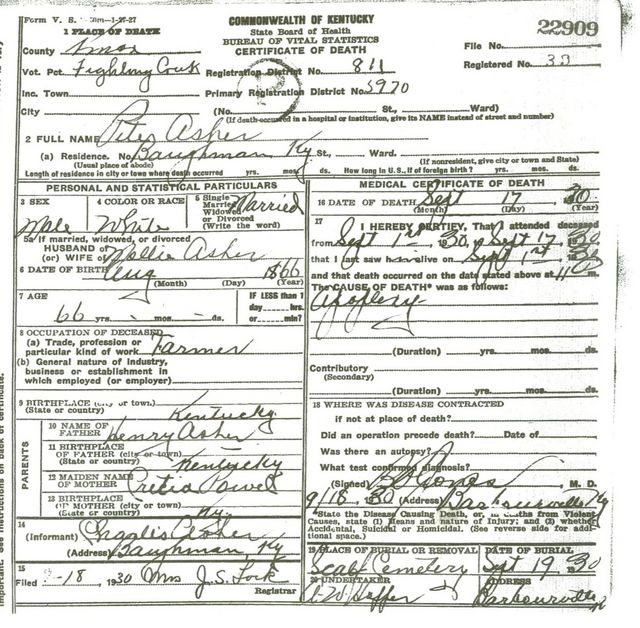 Form V. S. 1-27-27
COMMONWEALTH OF KENTUCKY
State Board of Health
BUREAU OF VITAL STATISTICS
CERTIFICATE OF DEATH
22909
1 PLACE OF DEATH
County Knox
File No.
Registered No. 33
Vot. Pct. Fighting Creek Registration District No. 811
Inc. Town Primary Registration District No. 5970
City (No. St., Ward)
(If death occurred in a hospital or institution, give its NAME instead of street and number)
2 FULL NAME Peter Asher
(a) Residence. No. Baughman Ky St., Ward.
(Usual place of abode) (If nonresident, give city or town and State)
Length of residence in city or town where death occurred yrs. mos. ds. How long in U. S., if of foreign birth? yrs. mos. ds.
PERSONAL AND STATISTICAL PARTICULARS
3 SEX 4 COLOR OR RACE 5 Single Married Widowed or Divorced (Write the word)
Male White Married
5a If married, widowed, or divorced
HUSBAND OF
(or) WIFE OF Mollie Asher
6 DATE OF BIRTH Aug 1866
(Month) (Day) (Year)
7 AGE IF LESS than 1
66 yrs. - mos. - ds. day hrs.
or min.?
8 OCCUPATION OF DECEASED
(a) Trade, profession or
particular kind of work Farmer
(b) General nature of industry,
business or establishment in
which employed (or employer)
9 BIRTHPLACE (city or town)
(State or country) Kentucky
PARENTS
10 NAME OF
FATHER Henry Asher
11 BIRTHPLACE
OF FATHER (city or town)
(State or country) Kentucky
12 MAIDEN NAME
OF MOTHER Cretia Powel
13 BIRTHPLACE
OF MOTHER (city or town)
(State or country) Ky.
14
(Informant) Asher
(Address) Baughman, Ky
15
Filed 9-18 1930 Mrs J. S.
Registrar
MEDICAL CERTIFICATE OF DEATH
16 DATE OF DEATH Sept 17, 1930
(Month) (Day) (Year)
17 I HEREBY CERTIFY, That I attended deceased
from Sept 1rd, 1930, to Sept 17, 1930
that I last saw him alive on Sept 1st, 1930
and that death occurred on the date stated above at 11 m.
The CAUSE OF DEATH* was as follows:
Apoplexy
(Duration) yrs. mos. ds.
Contributory
(Secondary)
(Duration) yrs. mos. ds.
18 WHERE WAS DISEASE CONTRACTED
if not at place of death?
Did an operation precede death? Date of
Was there an autopsy?
What test confirmed diagnosis?
(Signed) Jones, M. D.
9/18 1930 (Address) Barbourville Ky
*State the Disease Causing Death, or, in deaths from Violent
Causes, state (1) Means and nature of Injury; and (2) whether
Accidental, Suicidal or Homicidal. (See reverse side for addi-
tional space.)
19 PLACE OF BURIAL OR REMOVAL DATE OF BURIAL
Cemetery Sept 19 1930
20 UNDERTAKER ADDRESS
Barbourville
Important. See instructions on back of certificate.